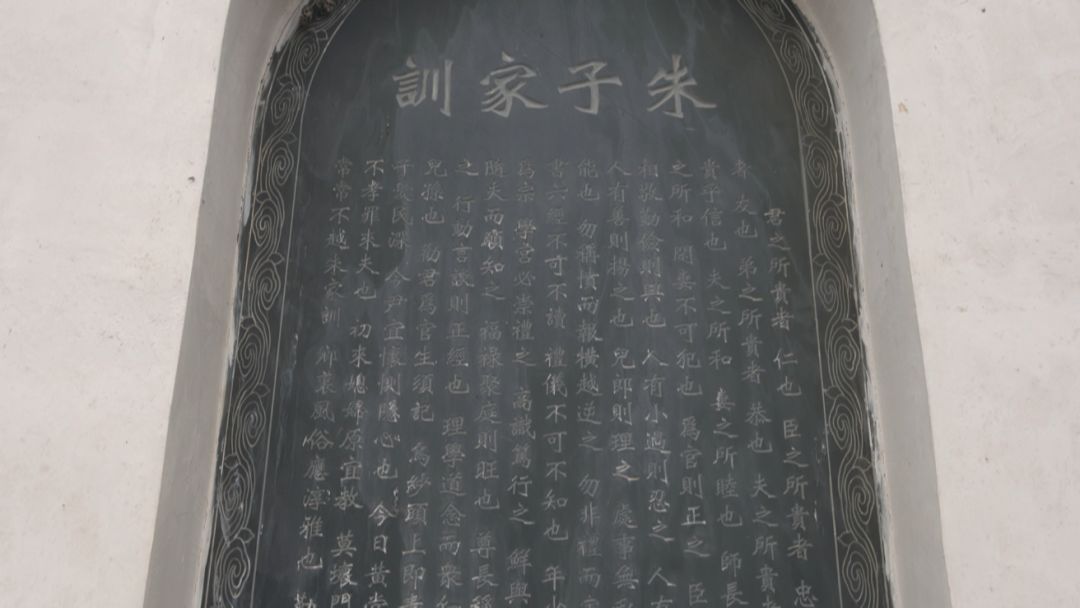 朱子家訓
君之所貴者 仁也 臣之所貴者 忠
者 友也 弟之所貴者 恭也 夫之所貴
貴乎信也 夫之所和 妻之所睦也 師長
之所和 閑 不可犯也 為官則正之 臣
相敬勤儉則興也 人有小過則忍之 人有
人有善則揚之也 兒郎則理之 處事無
能也 勿稱憤而報橫越逆之 勿非禮而
書六經不可不讀 禮儀不可不知也 年
為宗 學宮必崇禮之 高識篤行之 鮮與
隨夫而顧知之 福祿聚庭則旺也 尊長
之 行動言談則正經也 理學道念而眾
兒孫也 勸君為官生須記 為 頭上即青
于愛民深 今尹宜懷惻隱心也 今日黃堂
不孝罪來夫也 初來媳婦原宜教 莫壞門
常常不越朱家訓 鄉裏風俗應淳雅也 勤